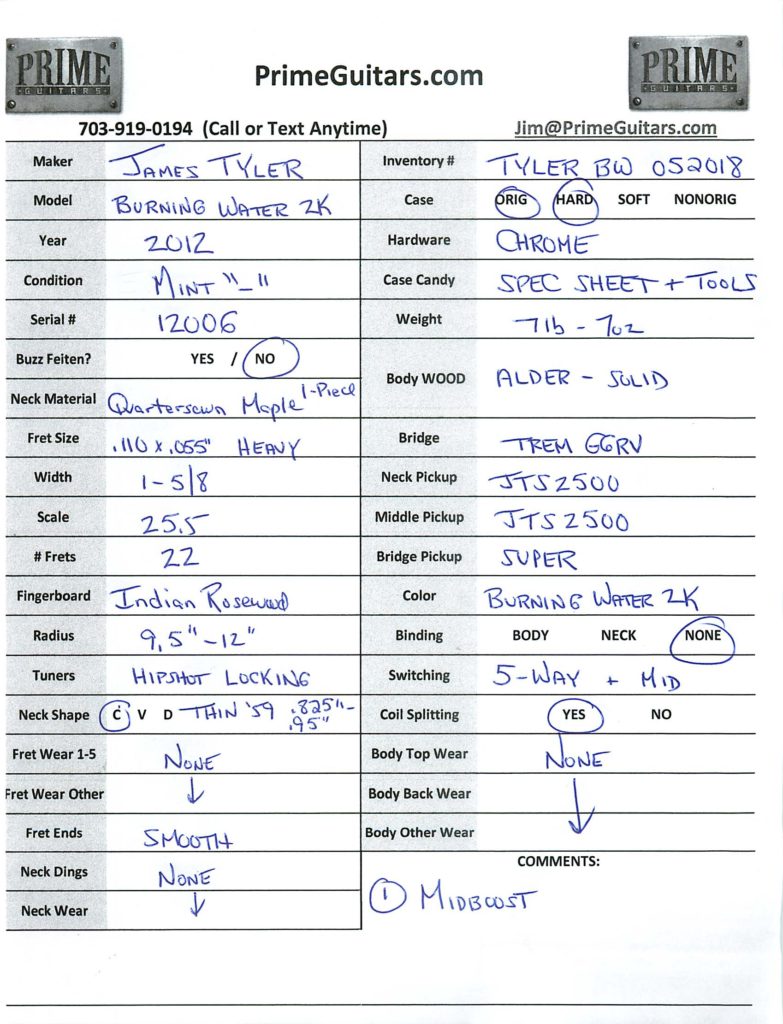 PRIME
GUITARS
PrimeGuitars.com
PRIME
GUITARS
703-919-0194 (Call or Text Anytime)
Jim@PrimeGuitars.com
Maker JAMES TYLER
Inventory # TYLER BW 052018
Model BURNING WATER 2K
Case ORIG HARD SOFT NONORIG
Year 2012
Hardware CHROME
Condition MINT "-"
Case Candy SPEC SHEET + TOOLS
Serial # 12006
Weight 7lb - 7oz
Buzz Feiten? YES / NO
Body WOOD ALDER - SOLID
Neck Material Quartersawn Maple 1-Piece
Fret Size .110 x .055" HEAVY
Bridge TREM GGRV
Width 1-5/8
Neck Pickup JTS2500
Scale 25.5
Middle Pickup JTS2500
# Frets 22
Bridge Pickup SUPER
Fingerboard Indian Rosewood
Color BURNING WATER 2K
Radius 9.5"-12"
Binding BODY NECK NONE
Tuners HIPSHOT LOCKING
Switching 5-WAY + MID
Neck Shape C V D THIN '59 .825"-.95"
Coil Splitting YES NO
Fret Wear 1-5 NONE
Body Top Wear NONE
Fret Wear Other ↓
Body Back Wear ↓
Fret Ends SMOOTH
Body Other Wear
Neck Dings NONE
COMMENTS:
Neck Wear ↓
1 MIDBOOST